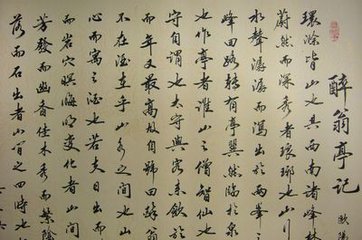 醉翁亭記
環滁皆山也其西南諸峰林
蔚然而深秀者琅琊也山行
水聲潺潺而瀉出於兩峯之
峰回路轉有亭翼然臨於泉
也作亭者誰山之僧智仙也
守自謂也太守與客來飲於
而年又最高故自號曰醉翁
不在酒在乎山水之間也山
心而寓之酒也若夫日出而
而岩穴暝晦明變化者山
芳發而幽香佳木秀而繁陰
落而石出者山間之四時也